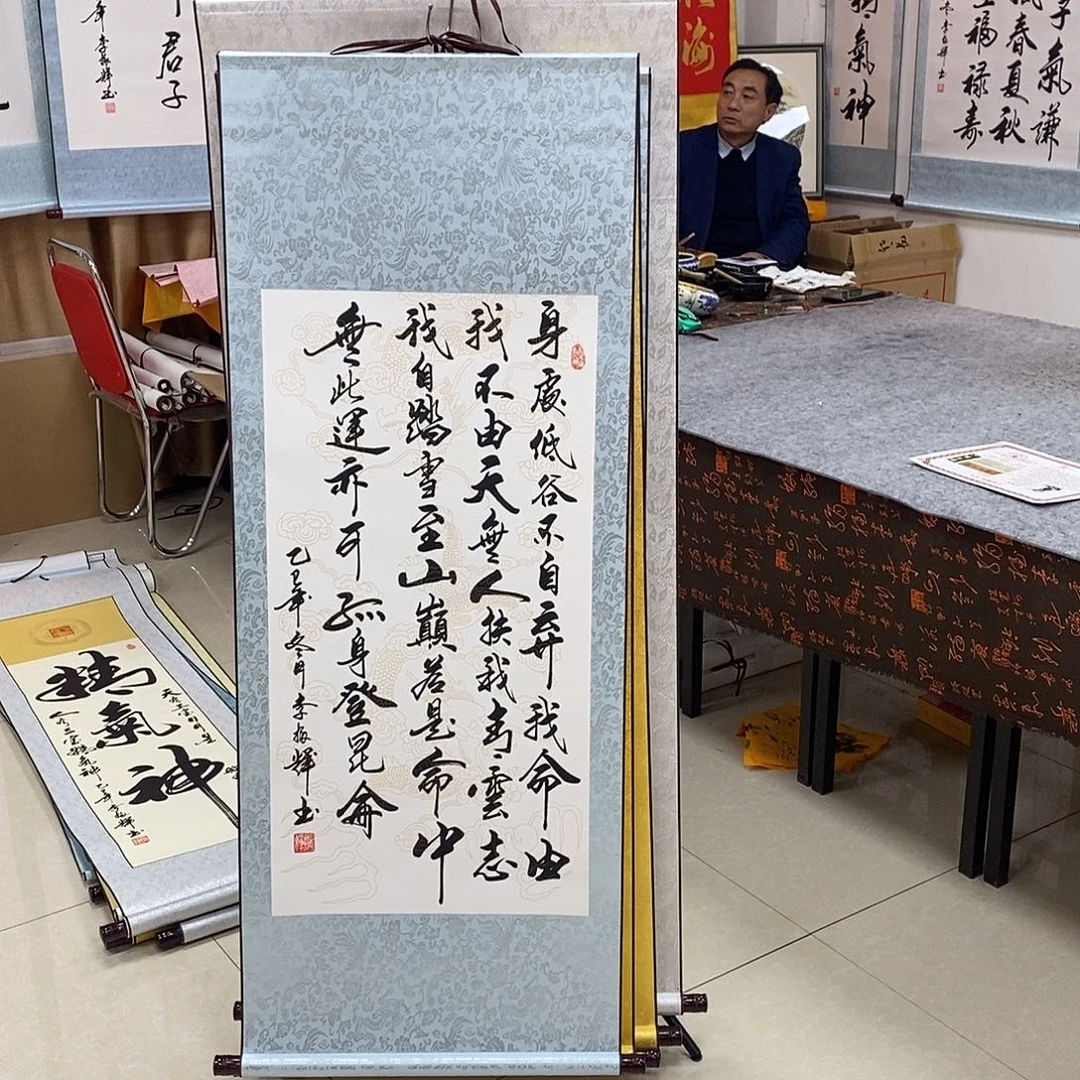 身處低谷不自弃我命由
我不由天無人扶我青雲志
我自踏雪至山巔若是命中
無此運亦可孤身登昆侖
乙巳年冬月李振輝书
精氣神
天有三宝日月星
人有三宝精氣神 乙巳年李振輝书
君子
年李振輝书
海
氣神
子氣謙
春夏秋
福禄寿